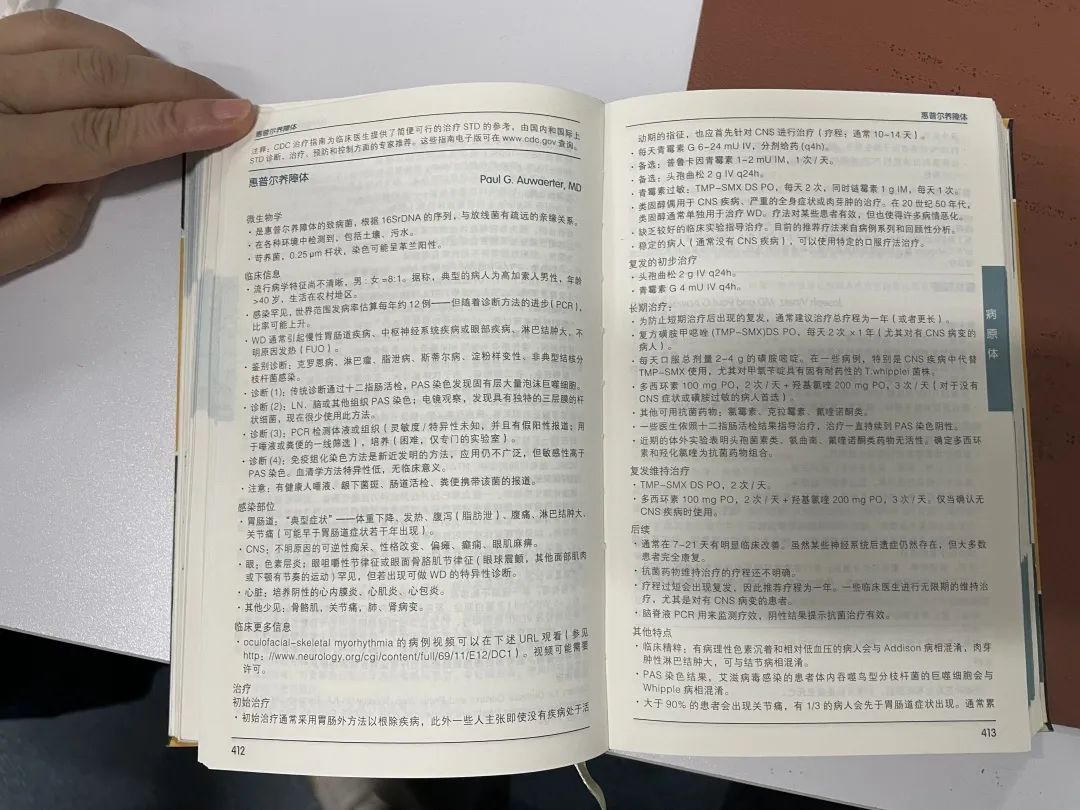 惠普尔养障体
注释：CDC 治疗指南为临床医生提供了简便可行的治疗 STD 的参考，由国内和国际上
STD 诊断、治疗、预防和控制方面的专家推荐。这些指南电子版可在 www.cdc.gov 查询。
惠普尔养障体
Paul G. Auwaerter, MD
微生物学
· 是惠普尔养障体的致病菌，根据 16SrDNA 的序列，与放线菌有疏远的亲缘关系。
· 在各种环境中检测到，包括土壤、污水。
· 苛养菌，0.25 μm 杆状，染色可能呈革兰阳性。
临床信息
· 流行病学特征尚不清晰，男：女 =8:1。据称，典型的病人为高加索人男性，年龄
>40 岁，生活在农村地区。
· 感染罕见，世界范围发病率估算每年约 12 例——但随着诊断方法的进步（PCR），
比率可能上升。
· WD 通常引起慢性胃肠道疾病、中枢神经系统疾病或眼部疾病、淋巴结肿大、不
明原因发热（FUO）。
· 鉴别诊断：克罗恩病、淋巴瘤、脂泄病、斯蒂尔病、淀粉样变性、非典型结核分
枝杆菌感染。
· 诊断（1）：传统诊断通过十二指肠活检，PAS 染色发现固有层大量泡沫巨噬细胞。
· 诊断（2）：LN、脑或其他组织 PAS 染色；电镜观察，发现具有独特的三层膜的杆
状细菌，现在很少使用此方法。
· 诊断（3）：PCR 检测体液或组织（灵敏度 / 特异性未知，并且有假阳性报道；用
于唾液或粪便的一线筛选），培养（困难，仅专门的实验室）。
· 诊断（4）：免疫组化染色方法是新近发明的方法，应用仍不广泛，但敏感性高于
PAS 染色。血清学方法特异性低，无临床意义。
· 注意：有健康人唾液、龈下菌斑、肠道活检、粪便携带该菌的报道。
感染部位
· 胃肠道：“典型症状”——体重下降、发热、腹泻（脂肪泄）、腹痛、淋巴结肿大、
关节痛（可能早于胃肠道症状若干年出现）。
· CNS：不明原因的可逆性痴呆、性格改变、偏瘫、癫痫、眼肌麻痹。
· 眼：色素层炎；眼咀嚼性节律征或眼面骨骼肌节律征（眼球震颤，其他面部肌肉
或下颚有节奏的运动）罕见，但若出现可做 WD 的特异性诊断。
· 心脏：培养阴性的心内膜炎、心肌炎、心包炎。
· 其他少见：骨骼肌，关节痛，肺、肾病变。
临床更多信息
· oculofacial-skeletal myorhythmia 的病例视频可以在下述 URL 观看（参见
http：//www.neurology.org/cgi/content/full/69/11/E12/DC1）。视频可能需要
许可。
治疗
初始治疗
· 初始治疗通常采用胃肠外方法以根除疾病，此外一些人主张即使没有疾病处于活
412
惠普尔养障体
动期的指征，也应首先针对 CNS 进行治疗（疗程：通常 10~14 天）。
· 每天青霉素 G 6~24 mU IV，分剂给药（q4h）。
· 备选：普鲁卡因青霉素 1~2 mU IM，1 次 / 天。
· 备选：头孢曲松 2 g IV q24h。
· 青霉素过敏：TMP-SMX DS PO，每天 2 次，同时链霉素 1 g IM，每天 1 次。
· 类固醇偶用于 CNS 疾病、严重的全身症状或肉芽肿的治疗。在 20 世纪 50 年代，
类固醇通常单独用于治疗 WD。疗法对某些患者有效，但也使得许多病情恶化。
· 缺乏较好的临床实验指导治疗。目前的推荐疗法来自病例系列和回顾性分析。
· 稳定的病人（通常没有 CNS 疾病），可以使用特定的口服疗法治疗。
复发的初步治疗
· 头孢曲松 2 g IV q24h。
· 青霉素 G 4 mU IV q4h。
长期治疗：
· 为防止短期治疗后出现的复发，通常建议治疗总疗程为一年（或者更长）。
· 复方磺胺甲噁唑（TMP-SMX）DS PO，每天 2 次 ×1 年（尤其对有 CNS 病变的
病人）。
· 每天口服总剂量 2~4 g 的磺胺嘧啶。在一些病例，特别是 CNS 疾病中代替
TMP-SMX 使用，尤其对甲氧苄啶具有固有耐药性的 T.whipplei 菌株。
· 多西环素 100 mg PO，2 次 / 天 + 羟基氯喹 200 mg PO，3 次 / 天（对于没有
CNS 症状或磺胺过敏的病人首选）。
· 其他可用抗菌药物：氯霉素、克拉霉素、氟喹诺酮类。
· 一些医生依照十二指肠活检结果指导治疗，治疗一直持续到 PAS 染色阴性。
· 近期的体外实验表明头孢菌素类、氨曲南、氟喹诺酮类药物无活性。确定多西环
素和羟化氯喹为抗菌药物组合。
复发维持治疗
· TMP-SMX DS PO，2 次 / 天。
· 多西环素 100 mg PO，2 次 / 天 + 羟基氯喹 200 mg PO，3 次 / 天。仅当确认无
CNS 疾病时使用。
后续
· 通常在 7~21 天有明显临床改善。虽然某些神经系统后遗症仍然存在，但大多数
患者完全康复。
· 抗菌药物维持治疗的疗程还不明确。
· 疗程过短会出现复发，因此推荐疗程为一年。一些临床医生进行无限期的维持治
疗，尤其是对有 CNS 病变的患者。
· 脑脊液 PCR 用来监测疗效，阴性结果提示抗菌治疗有效。
其他特点
· 临床精粹：有病理性色素沉着和相对低血压的病人会与 Addison 病相混淆，肉芽
肿性淋巴结肿大，可与结节病相混淆。
· PAS 染色结果，艾滋病毒感染的患者体内吞噬鸟型分枝杆菌的巨噬细胞会与
Whipple 病相混淆。
· 大于 90% 的患者会出现关节痛，有 1/3 的病人会先于胃肠道症状出现。通常累
413
病原体